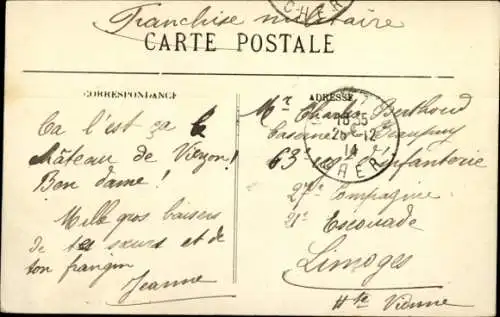 Franchise militaire
CHER
CARTE POSTALE
CORRESPONDANCE
ADRESSE
Ca l'est ça le
château de Vierzon!
Ben dame!
Mille gros baisers
de tes sœurs et de
ton frangin
Jeanne
18 35
26-12
14
CHER
Mr Charles Berthoud
Caserne Beaupuy
63e d'infanterie
27e Compagnie
21e Escouade
Limoges
Hte Vienne